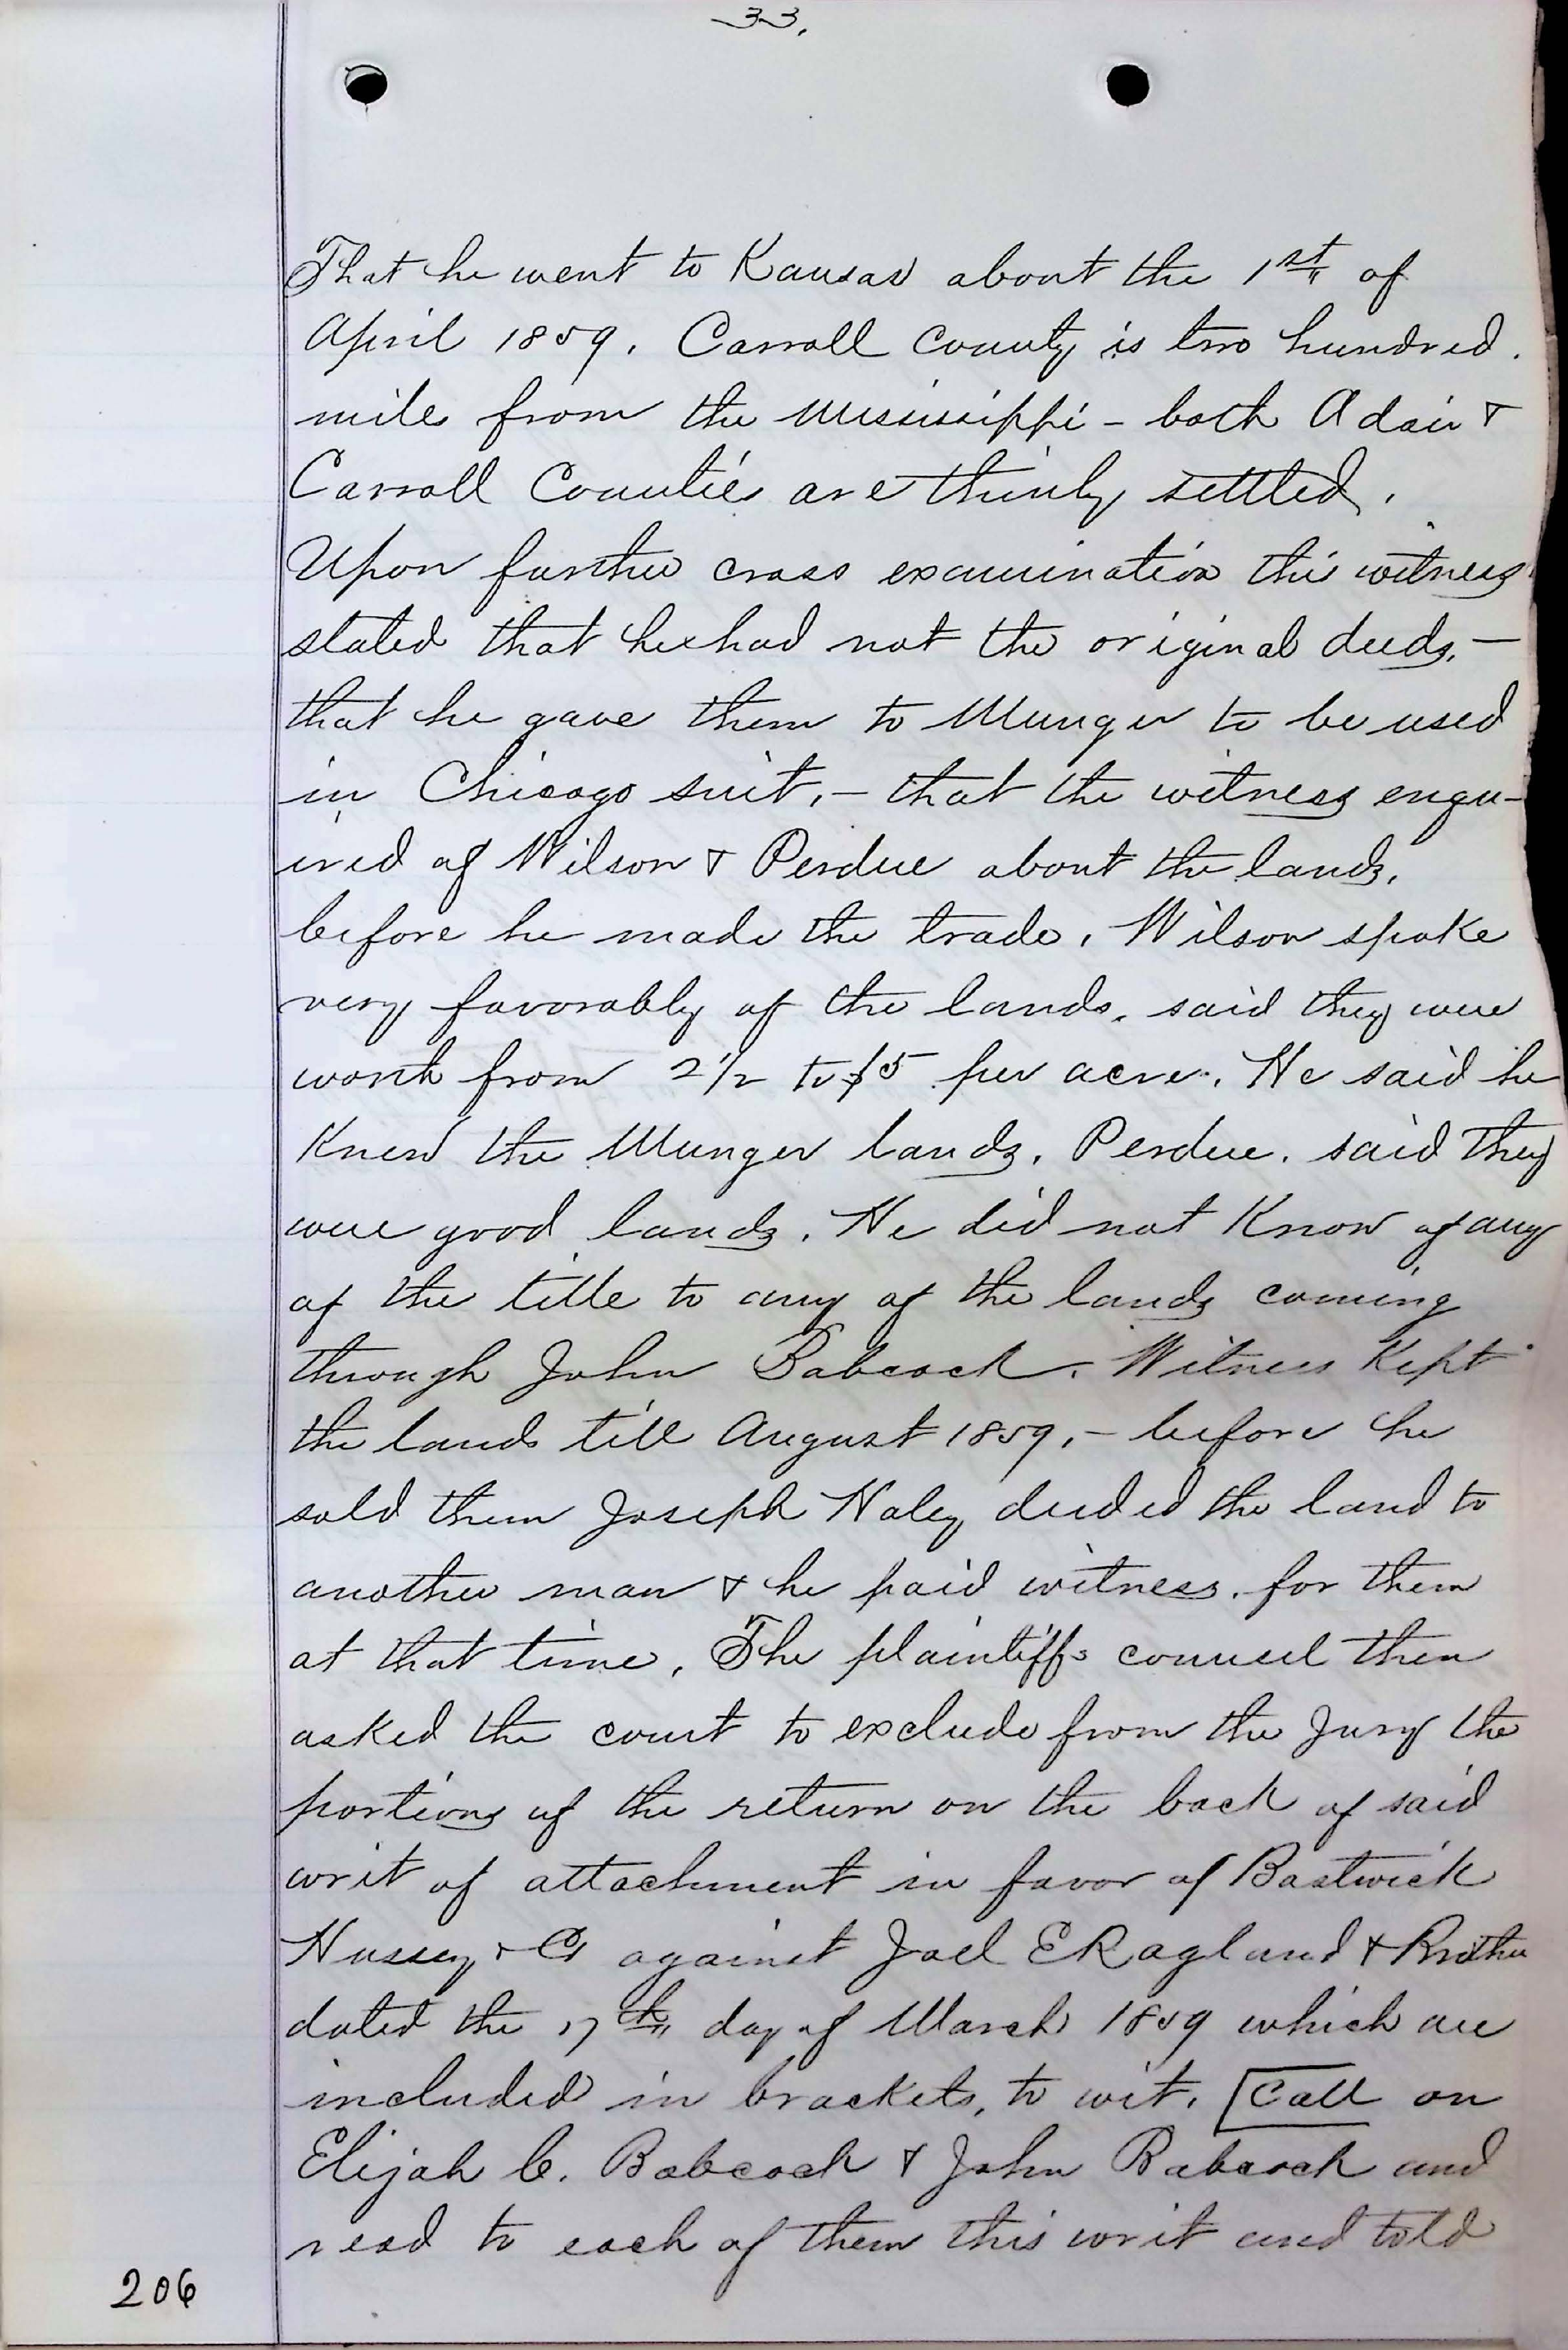 33.
That he went to Kansas about the 1st of
April 1859. Carroll County is two hundred.
mile from the Mississippi - both Adair &
Carroll Counties are thinly settled.
Upon further cross examination this witness
stated that he had not the original deeds. -
that he gave them to Munger to be used
in Chicago suit, - that the witness enqu-
ired of Wilson & Perdue about the lands,
before he made the trade. Wilson spoke
very favorably of the lands, said they were
worth from 2 1/2 to $5 per acre. He said he
Knew the Munger lands. Perdue. said they
were good lands. He did not Know of any
of the title to any of the lands coming
through John Babcock. Witness Kept
the lands till August 1859, - before he
sold them Joseph Haley deeded the land to
another man & he paid witness. for them
at that time. The plaintiffs counsel then
asked the court to exclude from the Jury the
portions of the return on the back of said
writ of attachment in favor of Bostwick
Hussey & Co against Joel E Ragland & Brother
dated the 17th day of March 1859 which are
included in brackets, to wit. [Call on
Elijah C. Babcock & John Babcock and
read to each of them this writ and told
206